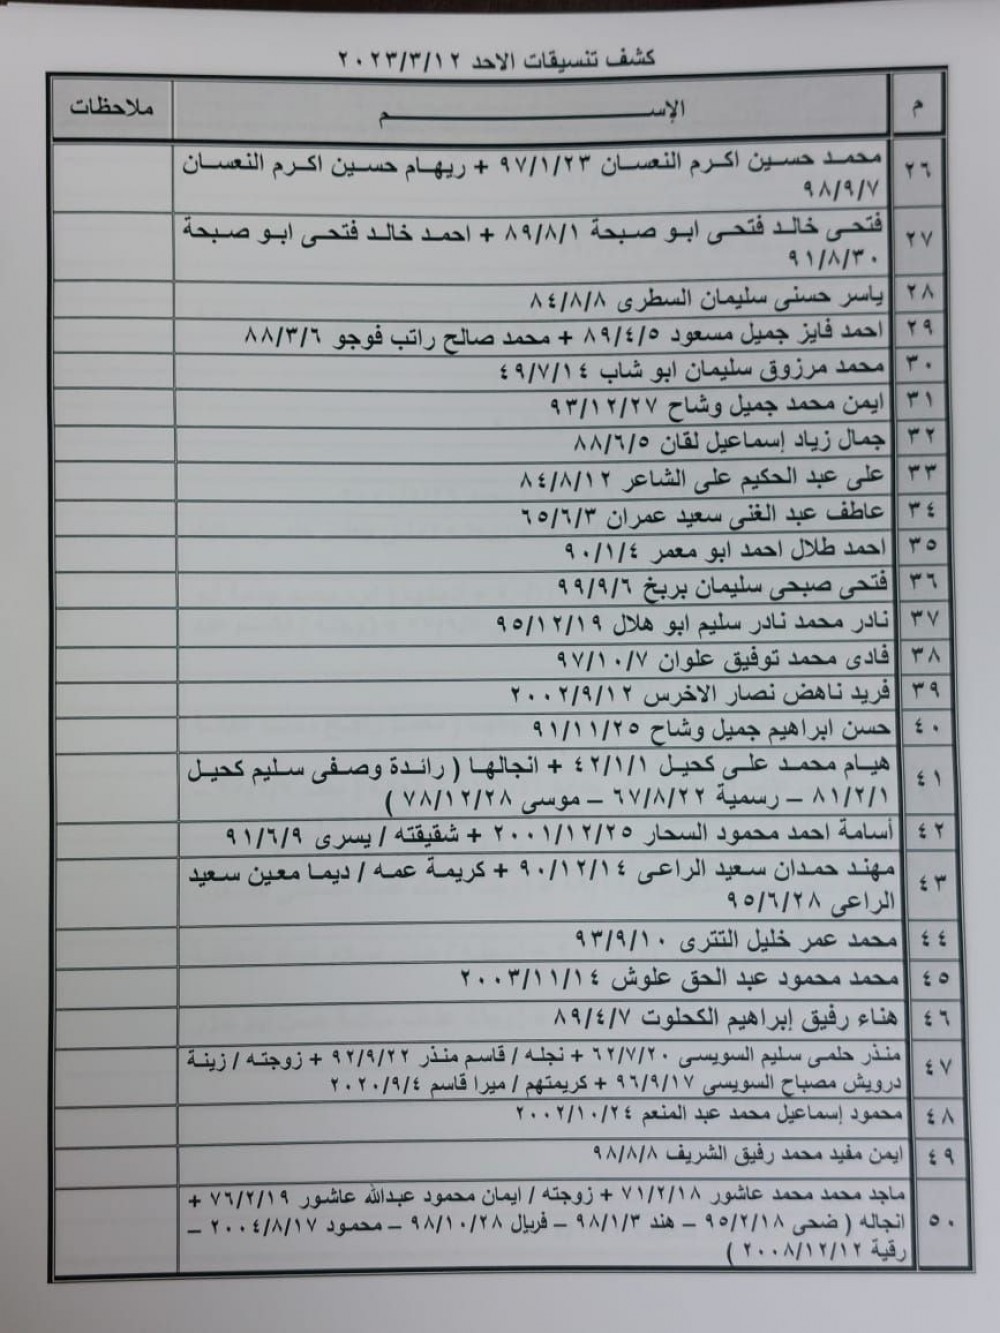 كشف تنسيقات الاحد ٢٠٢٣/٣/١٢
م الإســـــم ملاحظات
٢٦ محمد حسين اكرم النعسان ٩٧/١/٢٣ + ريهام حسين اكرم النعسان
٩٨/٩/٧
٢٧ فتحى خالد فتحى ابو صبحة ٨٩/٨/١ + احمد خالد فتحى ابو صبحة
٩١/٨/٣٠
٢٨ ياسر حسنى سليمان السطرى ٨٤/٨/٨
٢٩ احمد فايز جميل مسعود ٨٩/٤/٥ + محمد صالح راتب فوجو ٨٨/٣/٦
٣٠ محمد مرزوق سليمان ابو شاب ٤٩/٧/١٤
٣١ ايمن محمد جميل وشاح ٩٣/١٢/٢٧
٣٢ جمال زياد إسماعيل لقان ٨٨/٦/٥
٣٣ على عبد الحكيم على الشاعر ٨٤/٨/١٢
٣٤ عاطف عبد الغنى سعيد عمران ٦٥/٦/٣
٣٥ احمد طلال احمد ابو معمر ٩٠/١/٤
٣٦ فتحى صبحى سليمان بربخ ٩٩/٩/٦
٣٧ نادر محمد نادر سليم ابو هلال ٩٥/١٢/١٩
٣٨ فادى محمد توفيق علوان ٩٧/١٠/٧
٣٩ فريد ناهض نصار الاخرس ٢٠٠٢/٩/١٢
٤٠ حسن ابراهيم جميل وشاح ٩١/١١/٢٥
٤١ هيام محمد على كحيل ٤٢/١/١ + انجالها ( رائدة وصفى سليم كحيل
٨١/٢/١ – رسمية ٦٧/٨/٢٢ – موسى ٧٨/١٢/٢٨ )
٤٢ أسامة احمد محمود السحار ٢٠٠١/١٢/٢٥ + شقيقته / يسرى ٩١/٦/٩
٤٣ مهند حمدان سعيد الراعى ٩٠/١٢/١٤ + كريمة عمه / ديما معين سعيد
الراعى ٩٥/٦/٢٨
٤٤ محمد عمر خليل التترى ٩٣/٩/١٠
٤٥ محمد محمود عبد الحق علوش ٢٠٠٣/١١/١٤
٤٦ هناء رفيق إبراهيم الكحلوت ٨٩/٤/٧
٤٧ منذر حلمى سليم السويسى ٦٢/٧/٢٠ + نجله / قاسم منذر ٩٢/٩/٢٢ + زوجته / زينة
درويش مصباح السويسى ٩٦/٩/١٧ + كريمتهم / ميرا قاسم ٢٠٢٠/٩/٤
٤٨ محمود إسماعيل محمد عبد المنعم ٢٠٠٢/١٠/٢٤
٤٩ ايمن مفيد محمد رفيق الشريف ٩٨/٨/٨
٥٠ ماجد محمد محمد عاشور ٧١/٢/١٨ + زوجته / ايمان محمود عبدالله عاشور ٧٦/٢/١٩ +
انجاله ( ضحى ٩٥/٢/١٨ – هند ٩٨/١/٣ – فريال ٩٨/١٠/٢٨ – محمود ٢٠٠٤/٨/١٧ –
رقية ٢٠٠٨/١٢/١٢ )